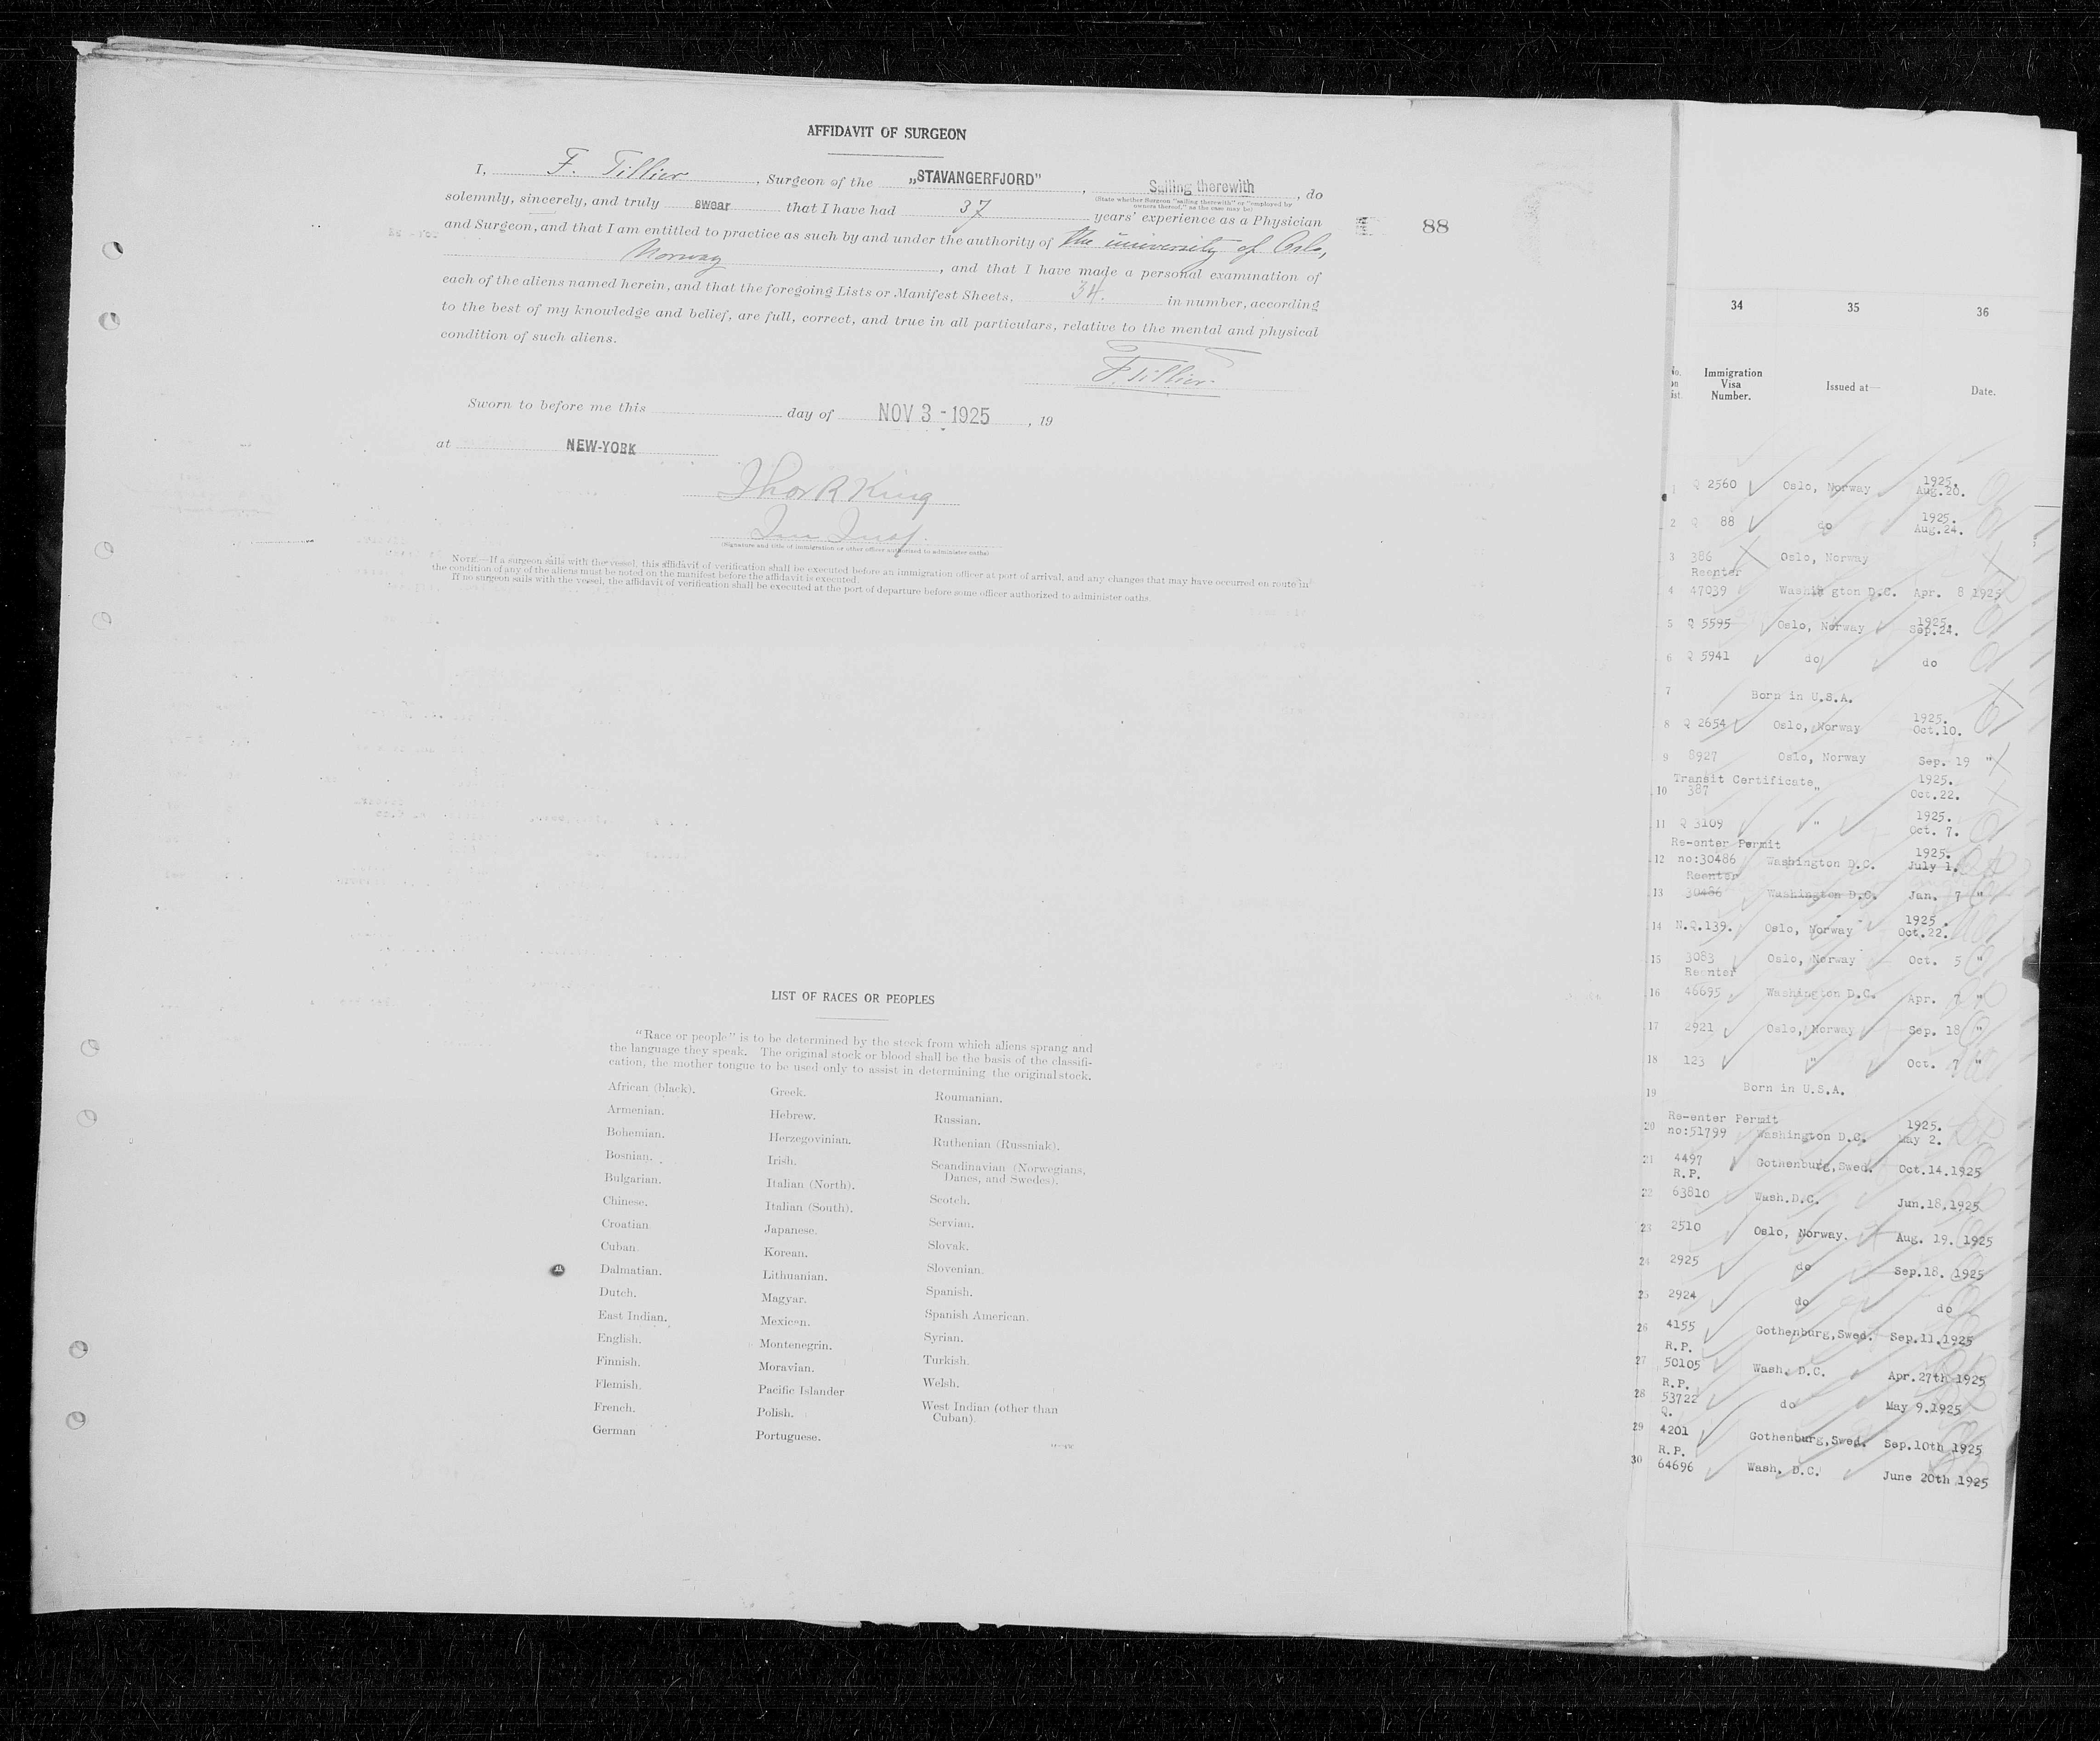 AFFIDAVIT OF SURGEON
I, F. Tillier, Surgeon of the „STAVANGERFJORD", Sailing therewith, do
(State whether Surgeon "sailing therewith" or "employed by
owners thereof," as the case may be)
solemnly, sincerely, and truly swear that I have had 37 years' experience as a Physician
and Surgeon, and that I am entitled to practice as such by and under the authority of the university of Oslo,
Norway, and that I have made a personal examination of
each of the aliens named herein, and that the foregoing Lists or Manifest Sheets, 34. in number, according
to the best of my knowledge and belief, are full, correct, and true in all particulars, relative to the mental and physical
condition of such aliens.
F. Tillier.
Sworn to before me this day of NOV 3 - 1925, 19
at NEW-YORK
Thor R King
Im Insp.
(Signature and title of immigration or other officer authorized to administer oaths)
NOTE.—If a surgeon sails with the vessel, this affidavit of verification shall be executed before an immigration officer at port of arrival, and any changes that may have occurred en route in
the condition of any of the aliens must be noted on the manifest before the affidavit is executed.
If no surgeon sails with the vessel, the affidavit of verification shall be executed at the port of departure before some officer authorized to administer oaths.
88
LIST OF RACES OR PEOPLES
"Race or people" is to be determined by the stock from which aliens sprang and
the language they speak. The original stock or blood shall be the basis of the classifi-
cation, the mother tongue to be used only to assist in determining the original stock.
African (black).
Armenian.
Bohemian.
Bosnian.
Bulgarian.
Chinese.
Croatian.
Cuban.
Dalmatian.
Dutch.
East Indian.
English.
Finnish.
Flemish.
French.
German
Greek.
Hebrew.
Herzegovinian.
Irish.
Italian (North).
Italian (South).
Japanese.
Korean.
Lithuanian.
Magyar.
Mexican.
Montenegrin.
Moravian.
Pacific Islander
Polish.
Portuguese.
Roumanian.
Russian.
Ruthenian (Russniak).
Scandinavian (Norwegians,
Danes, and Swedes).
Scotch.
Servian.
Slovak.
Slovenian.
Spanish.
Spanish American.
Syrian.
Turkish.
Welsh.
West Indian (other than
Cuban).
34 35 36
No. on list. Immigration Visa Number. Issued at— Date.
1 Q 2560 Oslo, Norway 1925. Aug.20.
2 Q 88 do 1925. Aug.24.
3 386 Oslo, Norway
Reenter
4 47039 Washington D.C. Apr. 8 1925
5 Q 5595 Oslo, Norway 1925. Sep.24.
6 Q 5941 do do
7 Born in U.S.A.
8 Q 2654 Oslo, Norway 1925. Oct.10.
9 8927 Oslo, Norway Sep. 19 "
Transit Certificate
10 387 " 1925. Oct.22.
11 Q 3109 " 1925. Oct. 7.
Re-enter Permit
12 no:30486 Washington D.C. 1925. July 1.
Reenter
13 30486 Washington D.C. Jan. 7 "
14 N.Q.139. Oslo, Norway 1925. Oct.22.
15 3083 Oslo, Norway Oct. 5 "
Reenter
16 46695 Washington D.C. Apr. 7 "
17 2921 Oslo, Norway Sep. 18 "
18 123 " Oct. 7 "
19 Born in U.S.A.
Re-enter Permit
20 no:51799 Washington D.C. 1925. May 2.
21 4497 Gothenburg,Swed. Oct.14.1925
R.P.
22 63810 Wash.D.C. Jun.18.1925
23 2510 Oslo, Norway. Aug. 19. 1925
24 2925 do Sep.18. 1925
25 2924 do do
26 4155 Gothenburg,Swed. Sep.11.1925
R.P.
27 50105 Wash. D.C. Apr.27th 1925
R.P.
28 53722 do May 9.1925
Q.
29 4201 Gothenburg,Swed. Sep.10th 1925
R.P.
30 64696 Wash. D.C. June 20th 1925